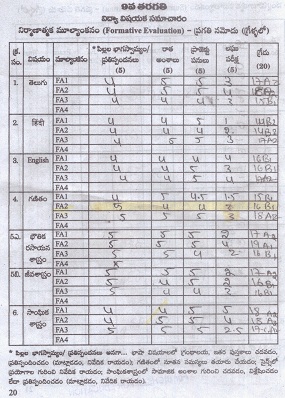 9వ తరగతి
విద్యా విషయక సమాచారం
నిర్మాణాత్మక మూల్యాంకనం (Formative Evaluation) – ప్రగతి నమోదు (గ్రేడ్లలో)
క్ర. సం. విషయం మూల్యాంకనం * పిల్లల భాగస్వామ్యం/ ప్రతిస్పందనలు (5) రాత అంశాలు (5) ప్రాజెక్టు పనులు (5) లఘు పరీక్ష (5) గ్రేడు (20)
1. తెలుగు FA1 4 5 5 3 17A2
FA2 4 5 5 4
FA3 4 4 4 3 15B1
FA4
2. हिंदी FA1 4 5 4
FA2 4 4 4 2 14B2
FA3 4 5 5 3 17A2
FA4
3. English FA1 4 4 4 4 16B1
FA2 4 4 4 4 16B1
FA3 4 4 5 4 17A2
FA4
4. గణితం FA1 4 5 4.5 1.5 15B1
FA2 5 4 4 16B1
FA3 5 5 5 3 18A2
FA4
5ఎ. భౌతిక రసాయన శాస్త్రం FA1 5 5 5 2 17A2
FA2 5 5 5 4 19A1
FA3 5 5 4 2 16B1
FA4
5బి. జీవశాస్త్రం FA1 5 5 5 2 17A2
FA2 5 4 5 2 16B1
FA3 5 5 4 2 16B1
FA4
6. సాంఘిక శాస్త్రం FA1 4 4 5 5 18A2
FA2 4 4 5 5 18A2
FA3 5 5 5 2.5
FA4
* పిల్లల భాగస్వామ్యం/ ప్రతిస్పందనలు అనగా... భాషా విషయాలలో గ్రంథాలయ, ఇతర పుస్తకాలు చదవడం,
ప్రతిస్పందించడం (మాట్లాడడం, నివేదిక రాయడం); గణితంలో నూతన సమస్యలు తయారు చేయడం; సైన్స్‌లో
ప్రయోగాల గురించి నివేదిక రాయడం; సాంఘికశాస్త్రంలో సామాజిక అంశాల గురించి చదవడం, విశ్లేషించడం
లేదా ప్రతిస్పందించడం (మాట్లాడడం, నివేదిక రాయడం).
20